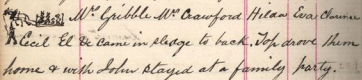 Mrs Gribble Mrs Crawford Hilda Eva
Cecil El & came in sledge to back. Top drove them
home & with John stayed at a family party.